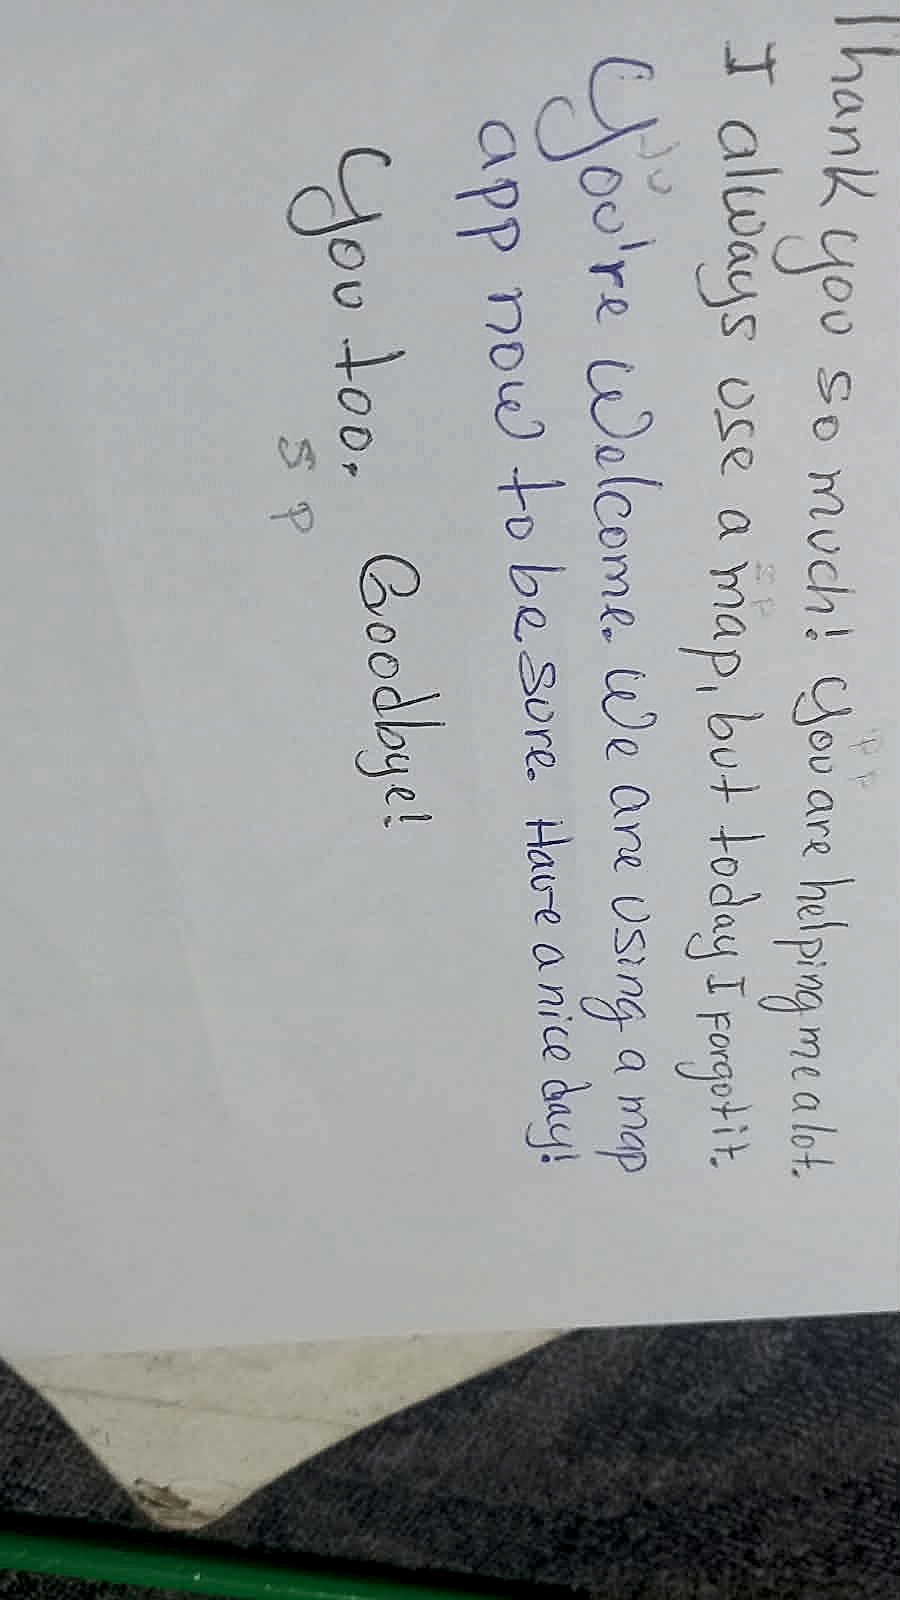 Thank you so much! You are helping me a lot.
I always use a map, but today I Forgot it.
You're welcome. We are using a map
app now to be sure. Have a nice day!
You too. Goodbye!
S P